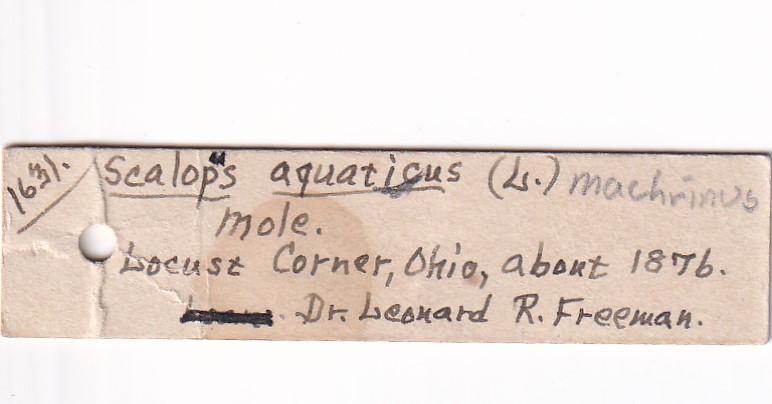 1631.
Scalops aquaticus (L.) machrinus
mole.
Locust Corner, Ohio, about 1876.
Dr. Leonard R. Freeman.